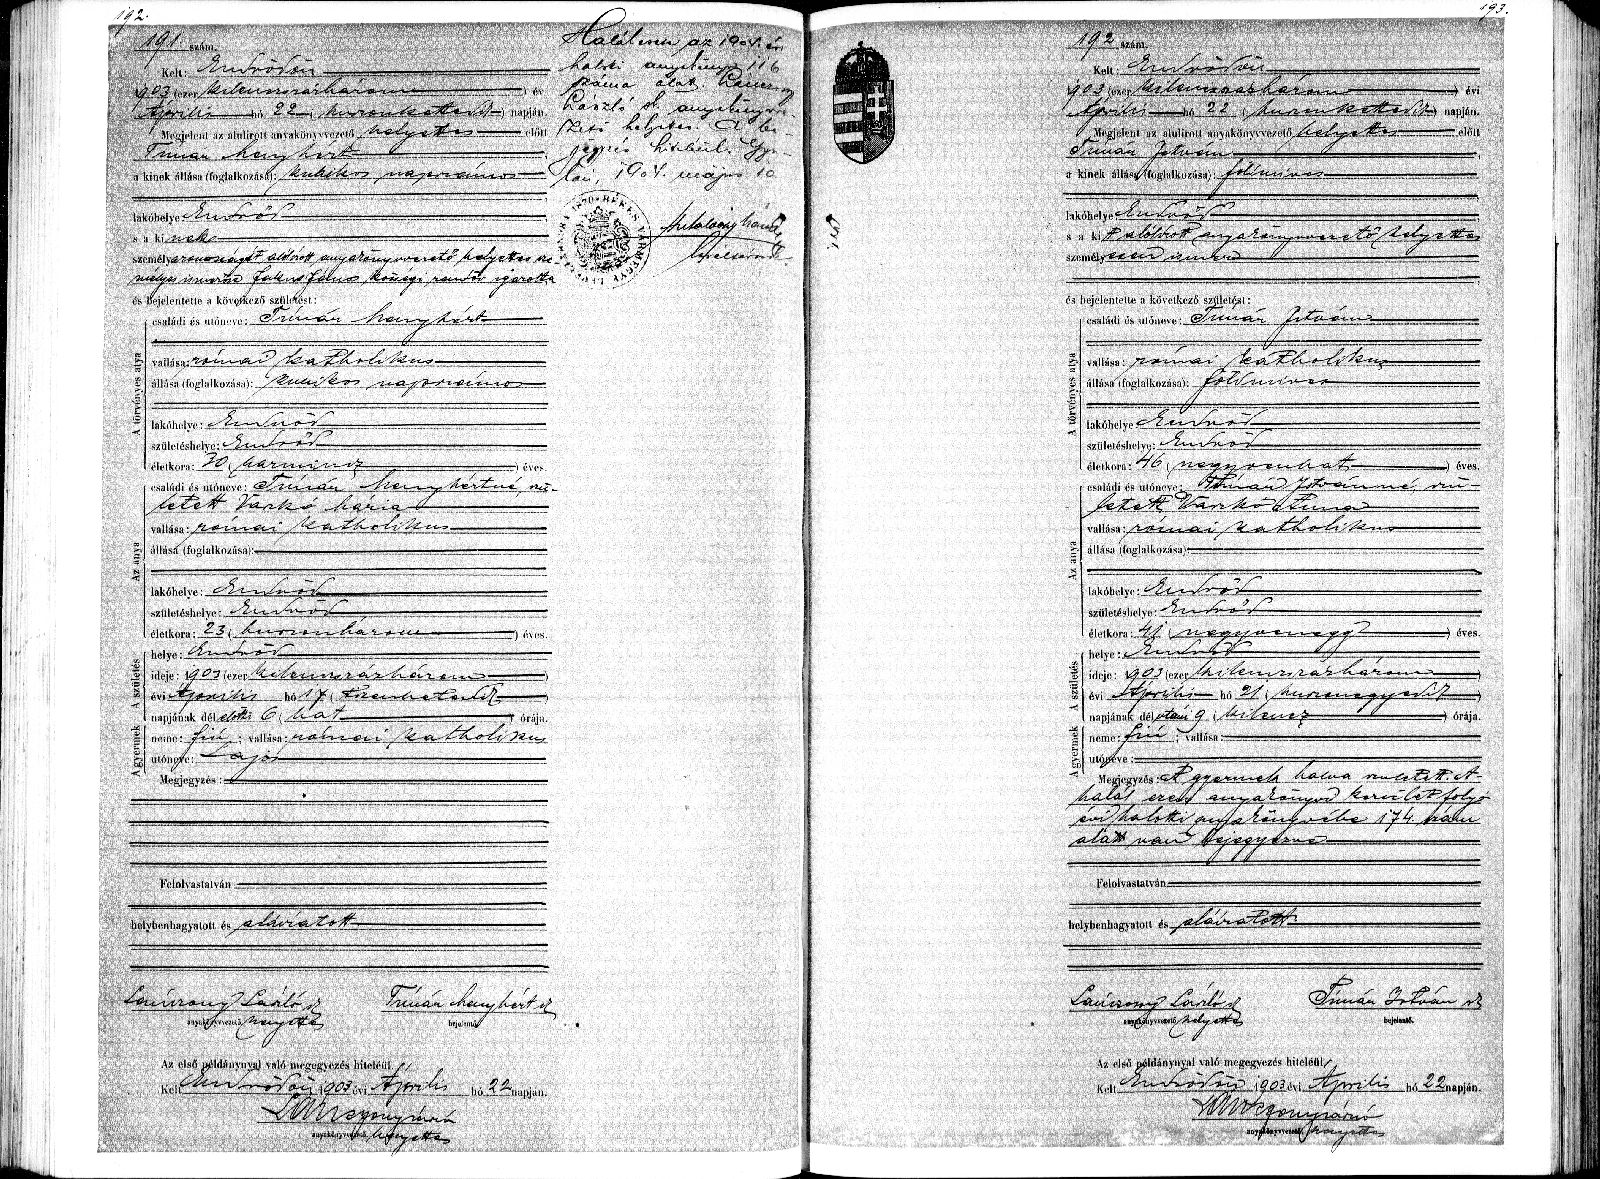 192.
191. szám.
Kelt: Endrődön
903 (ezer kilenczszázhárom) év
Április hó 22 (huszonkettedik) napján.
Megjelent az alulirott anyakönyvvezető helyettes előtt
Timár Menyhért
a kinek állása (foglalkozása): kubikos napszámos
lakóhelye Endrőd
s a kinek
személyazonosságát alólirott anyakönyvvezető helyettes
ismerőse János községi rendőr igazolta
és bejelentette a következő születést:
A törvényes atya
családi és utóneve: Timár Menyhért
vallása: római katholikus
állása (foglalkozása): kubikos napszámos
lakóhelye: Endrőd
születéshelye: Endrőd
életkora: 30 (harmincz) éves.
Az anya
családi és utóneve: Timár Menyhértné, szü-
letett Varkó Mária
vallása: római katholikus
állása (foglalkozása):
lakóhelye: Endrőd
születéshelye: Endrőd
életkora: 23 (huszonhárom) éves.
A születés
helye: Endrőd
ideje: 903 (ezer kilenczszázhárom)
évi Április hó 17 (tizenhetedik)
napjának dél előtti 6 (hat) órája.
A gyermek
neme: fiú; vallása: római katholikus
utóneve: Lajos
Megjegyzés:
Felolvastatván
helybenhagyatott és aláiratott
László
Timár Menyhért
anyakönyvvezető helyettes
bejelentő.
Az első példánynyal való megegyezés hiteléül
Kelt Endrődön, 1903 évi Április hó 22 napján.
anyakönyvvezető helyettes
az 1904. évi
halotti anyakönyv 116
száma alatt.
László anyakönyvve-
zető helyettes. A be-
jegyzés hiteléül. Gyu-
lán, 1904. május 10
BÉKÉS VÁRMEGYE
193.
192 szám.
Kelt: Endrődön
903 (ezer kilenczszázhárom) évi
Április hó 22 (huszonkettedik) napján.
Megjelent az alulirott anyakönyvvezető helyettes előtt
Timár István
a kinek állása (foglalkozása): földmives
lakóhelye Endrőd
s a kit alólirott anyakönyvvezető helyettes
személyesen ismer
és bejelentette a következő születést:
A törvényes atya
családi és utóneve: Timár István
vallása: római katholikus
állása (foglalkozása): földmives
lakóhelye Endrőd
születéshelye: Endrőd
életkora: 46 (negyvenhat) éves.
Az anya
családi és utóneve: Timár Istvánné, szü-
letett Varkó Anna
vallása: római katholikus
állása (foglalkozása):
lakóhelye: Endrőd
születéshelye: Endrőd
életkora: 41 (negyvenegy) éves.
A születés
helye: Endrőd
ideje: 903 (ezer kilenczszázhárom)
évi Április hó 21 (huszonegyedik)
napjának dél utáni 9 (kilencz) órája.
A gyermek
neme: fiú; vallása:
utóneve:
Megjegyzés: A gyermek halva született. A
halál ezen anyakönyvi kerület folyó
évi halotti anyakönyvébe 174 szám
alatt van bejegyezve
Felolvastatván
helybenhagyatott és aláiratott
László
Timár István
anyakönyvvezető helyettes
bejelentő.
Az első példánynyal való megegyezés hiteléül
Kelt Endrődön 1903 évi Április hó 22 napján.
anyakönyvvezető helyettes